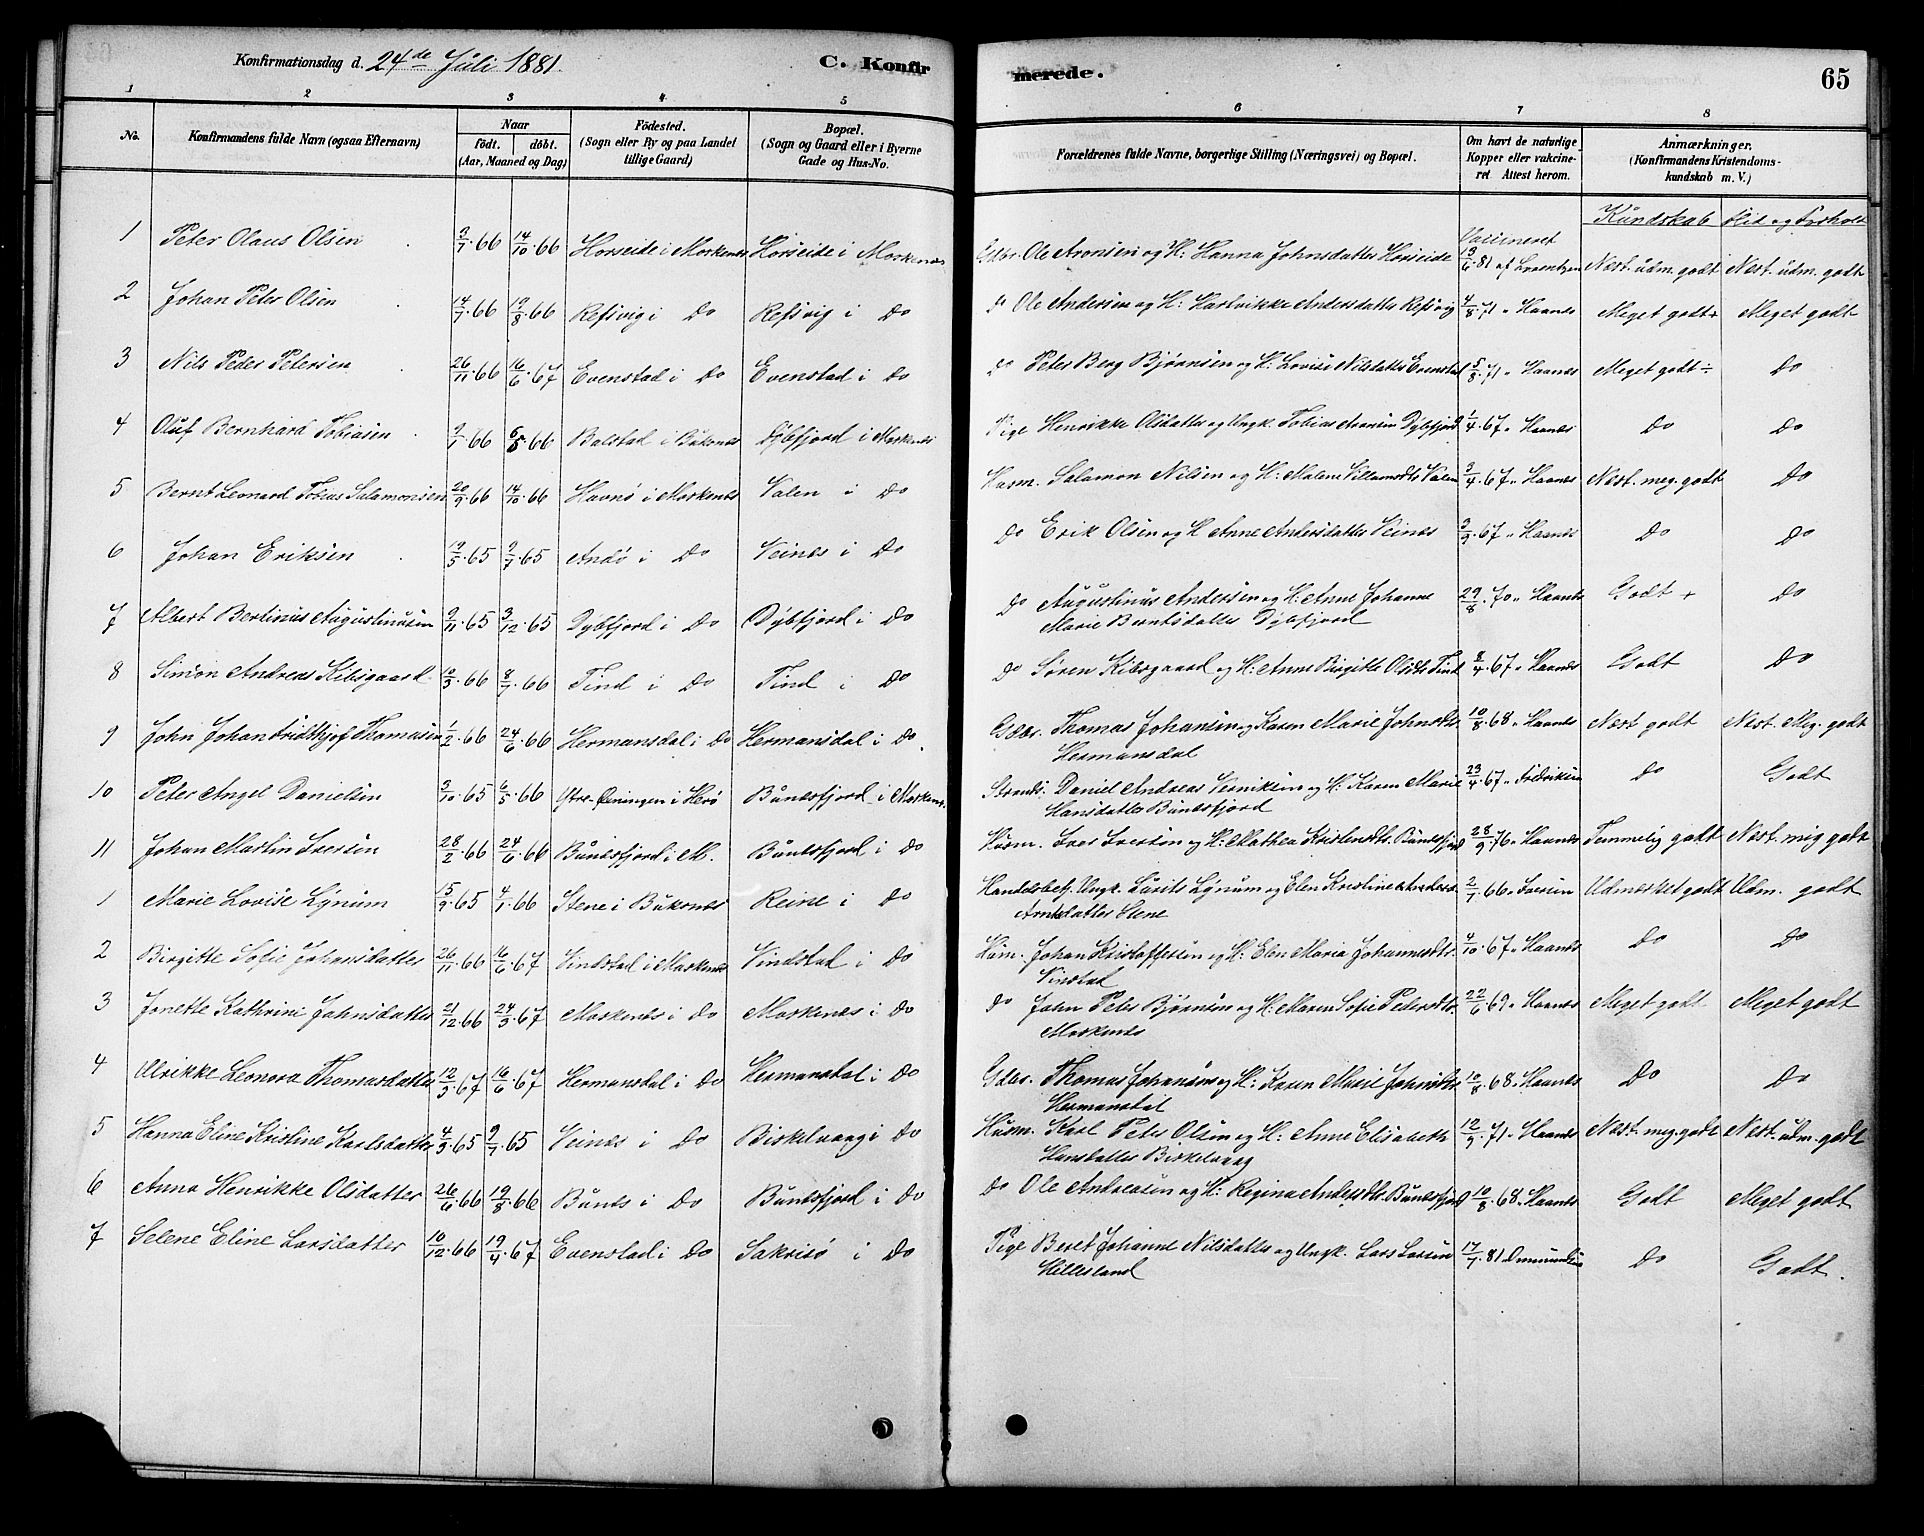 Konfirmationsdag d. 24de Juli 1881. C. Konfirmerede. 65
1 2 3 4 5 6 7 8
No. Konfirmandens fulde Navn (ogsaa Efternavn) Naar födt. döbt. (Aar, Maaned og Dag) Födested. (Sogn eller By og paa Landet tillige Gaard) Bopæl. (Sogn og Gaard eller i Byerne Gade og Hus-No. Forældrenes fulde Navne, borgerlige Stilling (Næringsvei) og Bopæl. Om havt de naturlige Kopper eller vakcineret Attest herom. Anmærkninger. (Konfirmandens Kristendomskundskab m. V.)
Kundskab Flid og Forhold
Vaccineret
1 Peter Olaus Olsen 3/7.66 14/10.66 Horseide i Moskenes Horseide i Moskenes Gdbr. Ole Aronsen og H: Hanna Johnsdatter Horseide 13/6.81 af Lorentzen Nest. udm. godt Nest. udm. godt
2 Johan Peter Olsen 14/7.66 19/8.66 Refsvig i Do Refsvig i Do do Ole Andersen og H: Hartvikke Andersdatter Refsvig 4/8.71 " Haanes Meget godt+ Meget godt
3 Nils Peder Petersen 26/11.66 16/6.67 Evenstad i Do Evenstad i Do do Peter Berg Bjørnsen og H: Lovise Nilsdatter Evenstad 5/8.71 " Haanes Meget godt÷ Do
4 Oluf Bernhard Tobiasen 9/1.66 6/5.66 Balstad i Buksnes Dybfjord i Moskenes Pige Henrikke Olsdatter og Ungk. Tobias Aronsen Dybfjord 1/4.67 " Haanes Do Do
5 Bernt Leonard Tobias Salamonsen 20/9.66 14/10.66 Havnø i Moskenes Valen i Do Husm. Salamon Nilsen og H: Malene Villumsdtr Valen 3/4.67 " Haanes Nest. meg. godt Do
6 Johan Eriksen 19/5.65 9/7.65 Andø i Do Veines i Do Do Erik Olsen og H Anne Andersdatter Veines 3/9.67 " Haanes Do Do
7 Albert Bertinus Augustinusen 9/11.65 3/12.65 Dybfjord i Do Dybfjord i Do Do Augustinus Andersen og H: Anne Johanne 29/8.70 " Haanes Godt + Do
Marie Berntsdatter Dybfjord
8 Simon Andreas Kibsgaard 12/3.66 8/7.66 Tind i Do Tind i Do Do Søren Kibsgaard og H: Anne Birgitte Olsdtr Tind 8/4.67 " Haanes Godt Do
9 John Johan Fridthjof Thomasen 1/2.66 24/6.66 Hermansdal i Do Hermansdal i Do Gdbr. Thomas Johansen og Karen Marie Johnsdtr. 10/8.68 " Haanes Nest godt Nest. Meg. godt
Hermansdal
10 Peter Angel Danielsen 3/10.65 6/5.66 i Herø Bunesfjord i Moskenes Strands. Daniel Andreas og H: Karen Marie 23/4.67 " Fredriksen Do Godt
Hansdatter Bunesfjord
11 Johan Martin Iversen 28/2.66 24/6.66 Bunesfjord i M. Bunesfjord i Do Husm. Iver Iversen og H: Mathea Kristensdtr. Bunesfjord 28/9.76 " Haanes Temmelig godt Nest. meg godt
1 Marie Lovise Lynum 15/9.65 4/1.66 Stene i Buksnes Reine i Do Handelsbetj. Ungk. Laurits Lynum og Elen Kristine Anders 2/7.66 " Iversen Udmærket godt Udm. godt
Arntsdatter Stene
2 Birgitte Sofie Johansdatter 26/11.66 16/6.67 Vindstad i Moskenes Vindstad i Do Husm. Johan Kristoffersen og H: Elen Maria Johannesdtr. 4/10.67 " Haanes Do Do
Vindstad
3 Janette Kathrine Johnsdatter 21/12.66 24/3.67 Moskenes i Do Moskenes i Do do John Peter Bjørnsen og H: Maren Sofie Pedersdtr. 22/6.69 " Haanes Meget godt Meget godt
Moskenes
4 Ulrikke Leonora Thomasdatter 12/3.67 16/6.67 Hermansdal i Do Hermansdal i Do Gdbr. Thomas Johansen og H: Karen Marie Johnsdtr. 10/8.68 " Haanes Do Do
Hermansdal
5 Hanna Eline Kristine Karlsdatter 4/3.65 9/7.65 Veines i Do Birkelvaag i Do Husm. Karl Peter Olsen og H: Anne Elisabeth 12/9.71 " Haanes Nest. meg. godt Nest. udm. godt
Hansdatter Birkelvaag
6 Anna Henrikke Olsdatter 26/6.66 19/8.66 Bunes i Do Bunesfjord i Do Do Ole Andreasen og H: Regina Andersdtr. Bunesfjord 10/8.68 " Haanes Godt Meget godt
7 Selene Eline Larsdatter 10/12.66 19/4.67 Evenstad i Do Sakrisø i Do Pige Beret Johanne Nilsdatter og Ungk. Lars Larsen 17/7.81 " Do Godt.
Hillesland